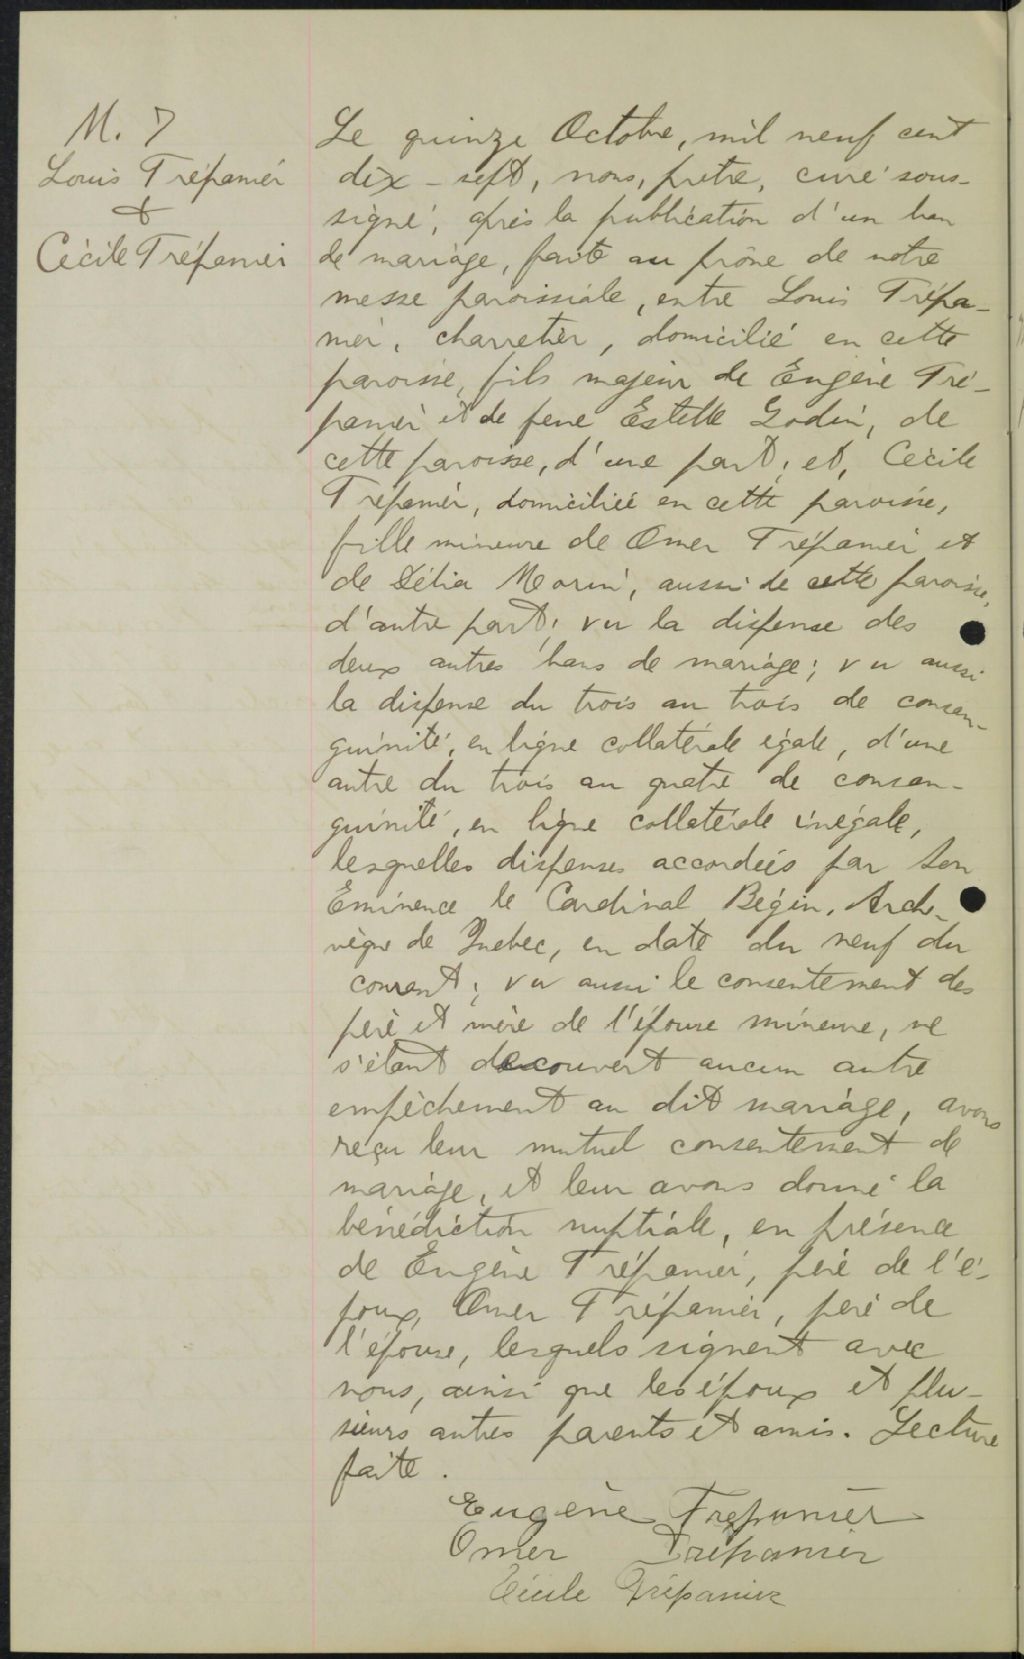 M. 7
Louis Trépanier
&
Cécile Trépanier
Le quinze Octobre, mil neuf cent
dix-sept, nous, prêtre, curé sous-
signé, après la publication d'un ban
de mariage, faite au prône de notre
messe paroissiale, entre Louis Trépa-
nier, charretier, domicilié en cette
paroisse, fils majeur de Eugène Tré-
panier et de feue Estelle Godin, de
cette paroisse, d'une part; et, Cécile
Trépanier, domiciliée en cette paroisse,
fille mineure de Omer Trépanier et
de Délia Morin, aussi de cette paroisse,
d'autre part; vu la dispense des
deux autres bans de mariage; vu aussi
la dispense du trois au trois de consan-
guinité, en ligne collatérale égale, d'une
autre du trois au quatre de consan-
guinité, en ligne collatérale inégale,
lesquelles dispenses accordées par Son
Eminence le Cardinal Bégin, Arche-
vêque de Québec, en date du neuf du
courant; vu aussi le consentement des
père et mère de l'épouse mineure, ne
s'étant découvert aucun autre
empêchement au dit mariage, avons
reçu leur mutuel consentement de
mariage, et leur avons donné la
bénédiction nuptiale, en présence
de Eugène Trépanier, père de l'é-
poux, Omer Trépanier, père de
l'épouse, lesquels signent avec
nous, ainsi que les époux et plu-
sieurs autres parents et amis. Lecture
faite.
Eugène Trepanier
Omer Trépanier
Cécile Trépanier